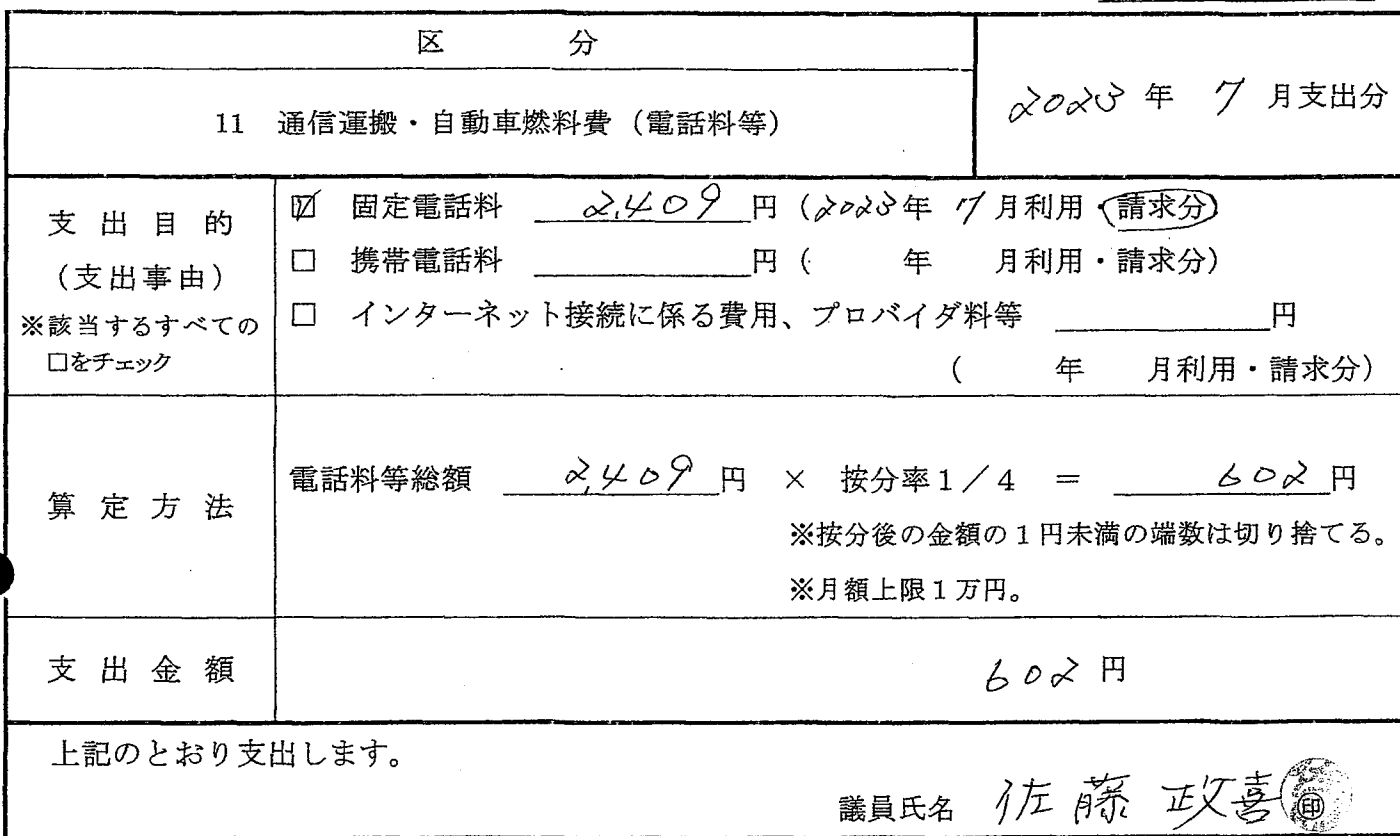 区 分
2023 年 7 月支出分
11 通信運搬・自動車燃料費（電話料等）
支 出 目 的
（支出事由）
※該当するすべての
□をチェック
☑ 固定電話料 2,409 円（2023年 7 月利用・請求分）
□ 携帯電話料 円（ 年 月利用・請求分）
□ インターネット接続に係る費用、プロバイダ料等 円
（ 年 月利用・請求分）
算 定 方 法
電話料等総額 2,409 円 × 按分率1／4 ＝ 602 円
※按分後の金額の１円未満の端数は切り捨てる。
※月額上限１万円。
支 出 金 額
602 円
上記のとおり支出します。
議員氏名 佐藤 政喜 ㊞